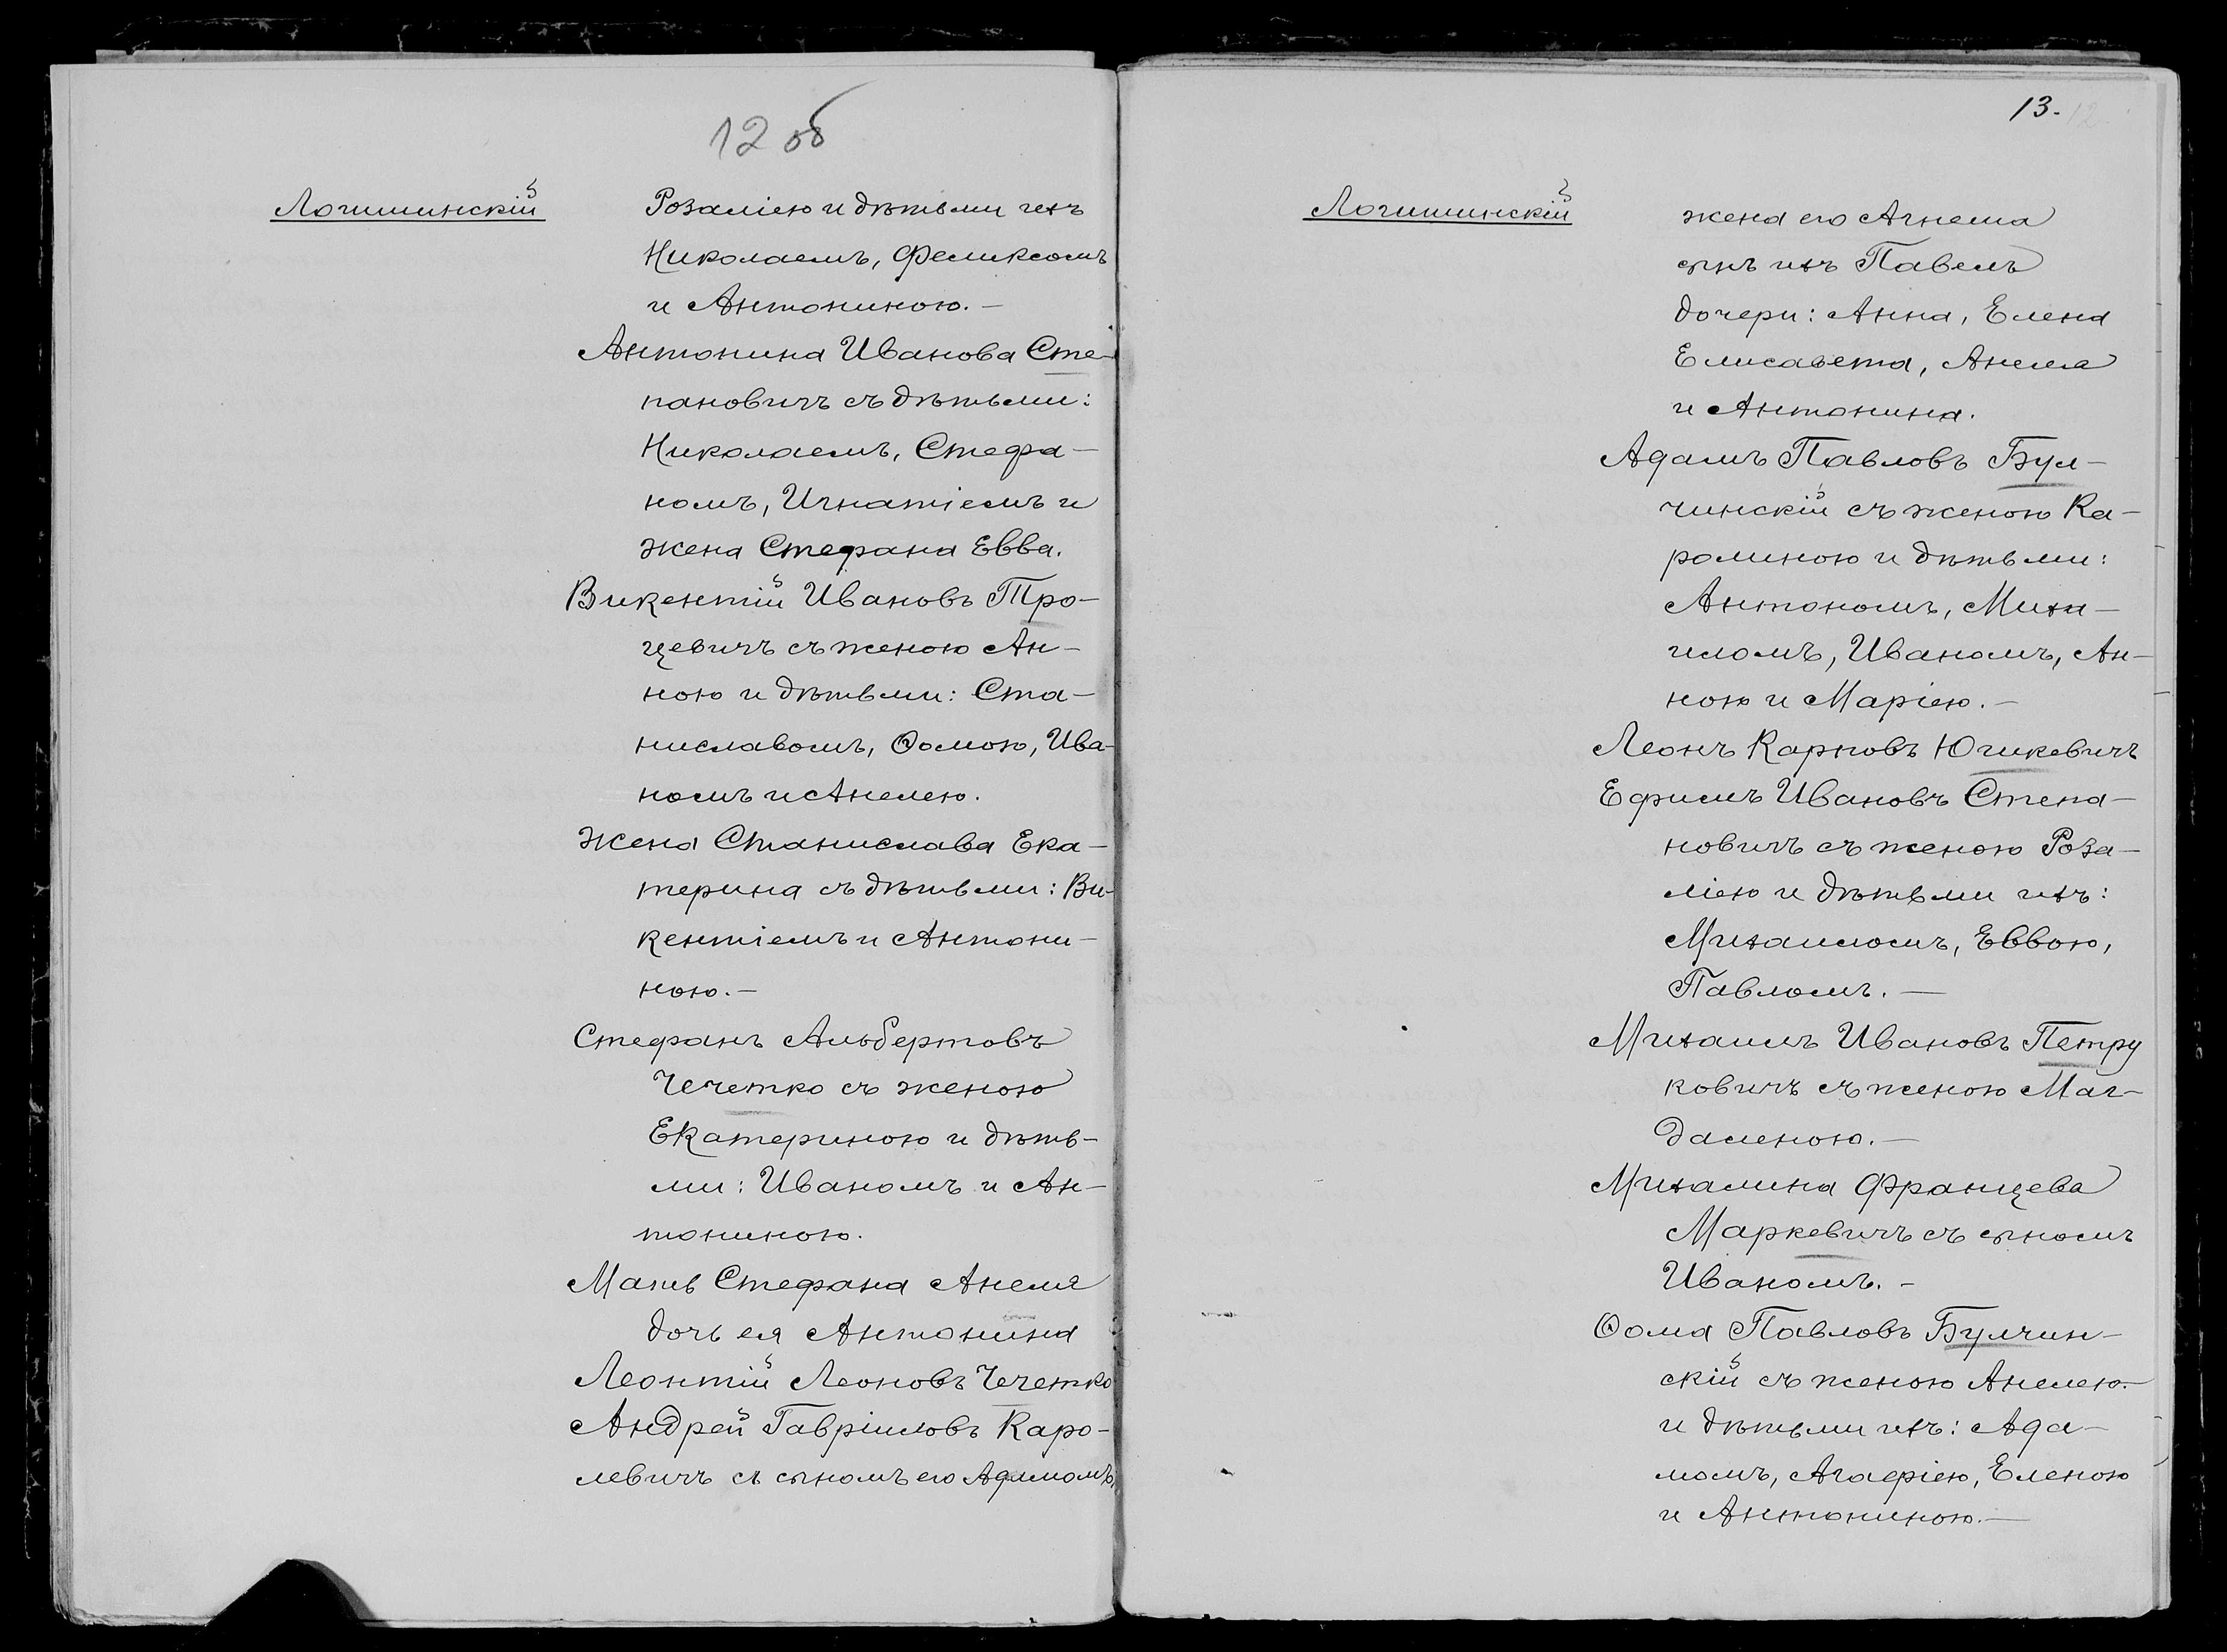 12 об
Логишинскій
Розаліею и дѣтьми ихъ
Николаемъ, Феликсомъ
и Антониною.—
Антонина Иванова Сте-
пановичъ съ дѣтьми:
Николаемъ, Стефа-
номъ, Игнатіемъ и
жена Стефана Евва.
Викентій Ивановъ Тро-
цевичъ съ женою Ан-
ною и дѣтьми: Ста-
ниславомъ, Ѳомою, Ива-
номъ и Анелею.
Жена Станислава Ека-
терина съ дѣтьми: Ви-
кентіемъ и Антони-
ною.—
Стефанъ Альбертовъ
Чечетко съ женою
Екатериною и дѣть-
ми: Иваномъ и Ан-
тониною.
Мать Стефана Анеля
дочь ея Антонина
Леонтій Леоновъ Чечетко
Андрей Гавріиловъ Каро-
левичъ съ сыномъ его Адамомъ,
13. 12.
Логишинскій
жена его Агнеша
сынъ ихъ Павелъ
дочери: Анна, Елена
Елисавета, Анеля
и Антонина.
Адамъ Павловъ Бул-
чинскій съ женою Ка-
ролиною и дѣтьми:
Антономъ, Миха-
иломъ, Иваномъ, Ан-
ною и Маріею.—
Леонъ Карповъ Югикевичъ
Ефимъ Ивановъ Степа-
новичъ съ женою Роза-
ліею и дѣтьми ихъ:
Михаиломъ, Еввою,
Павломъ.—
Михаилъ Ивановъ Петру
ковичъ съ женою Маг-
даленою.—
Михалина Францева
Маркевичъ съ сыномъ
Иваномъ.—
Ѳома Павловъ Булчин-
скій съ женою Анелею.
и дѣтьми ихъ: Ада-
момъ, Агафіею, Еленою
и Антониною.—